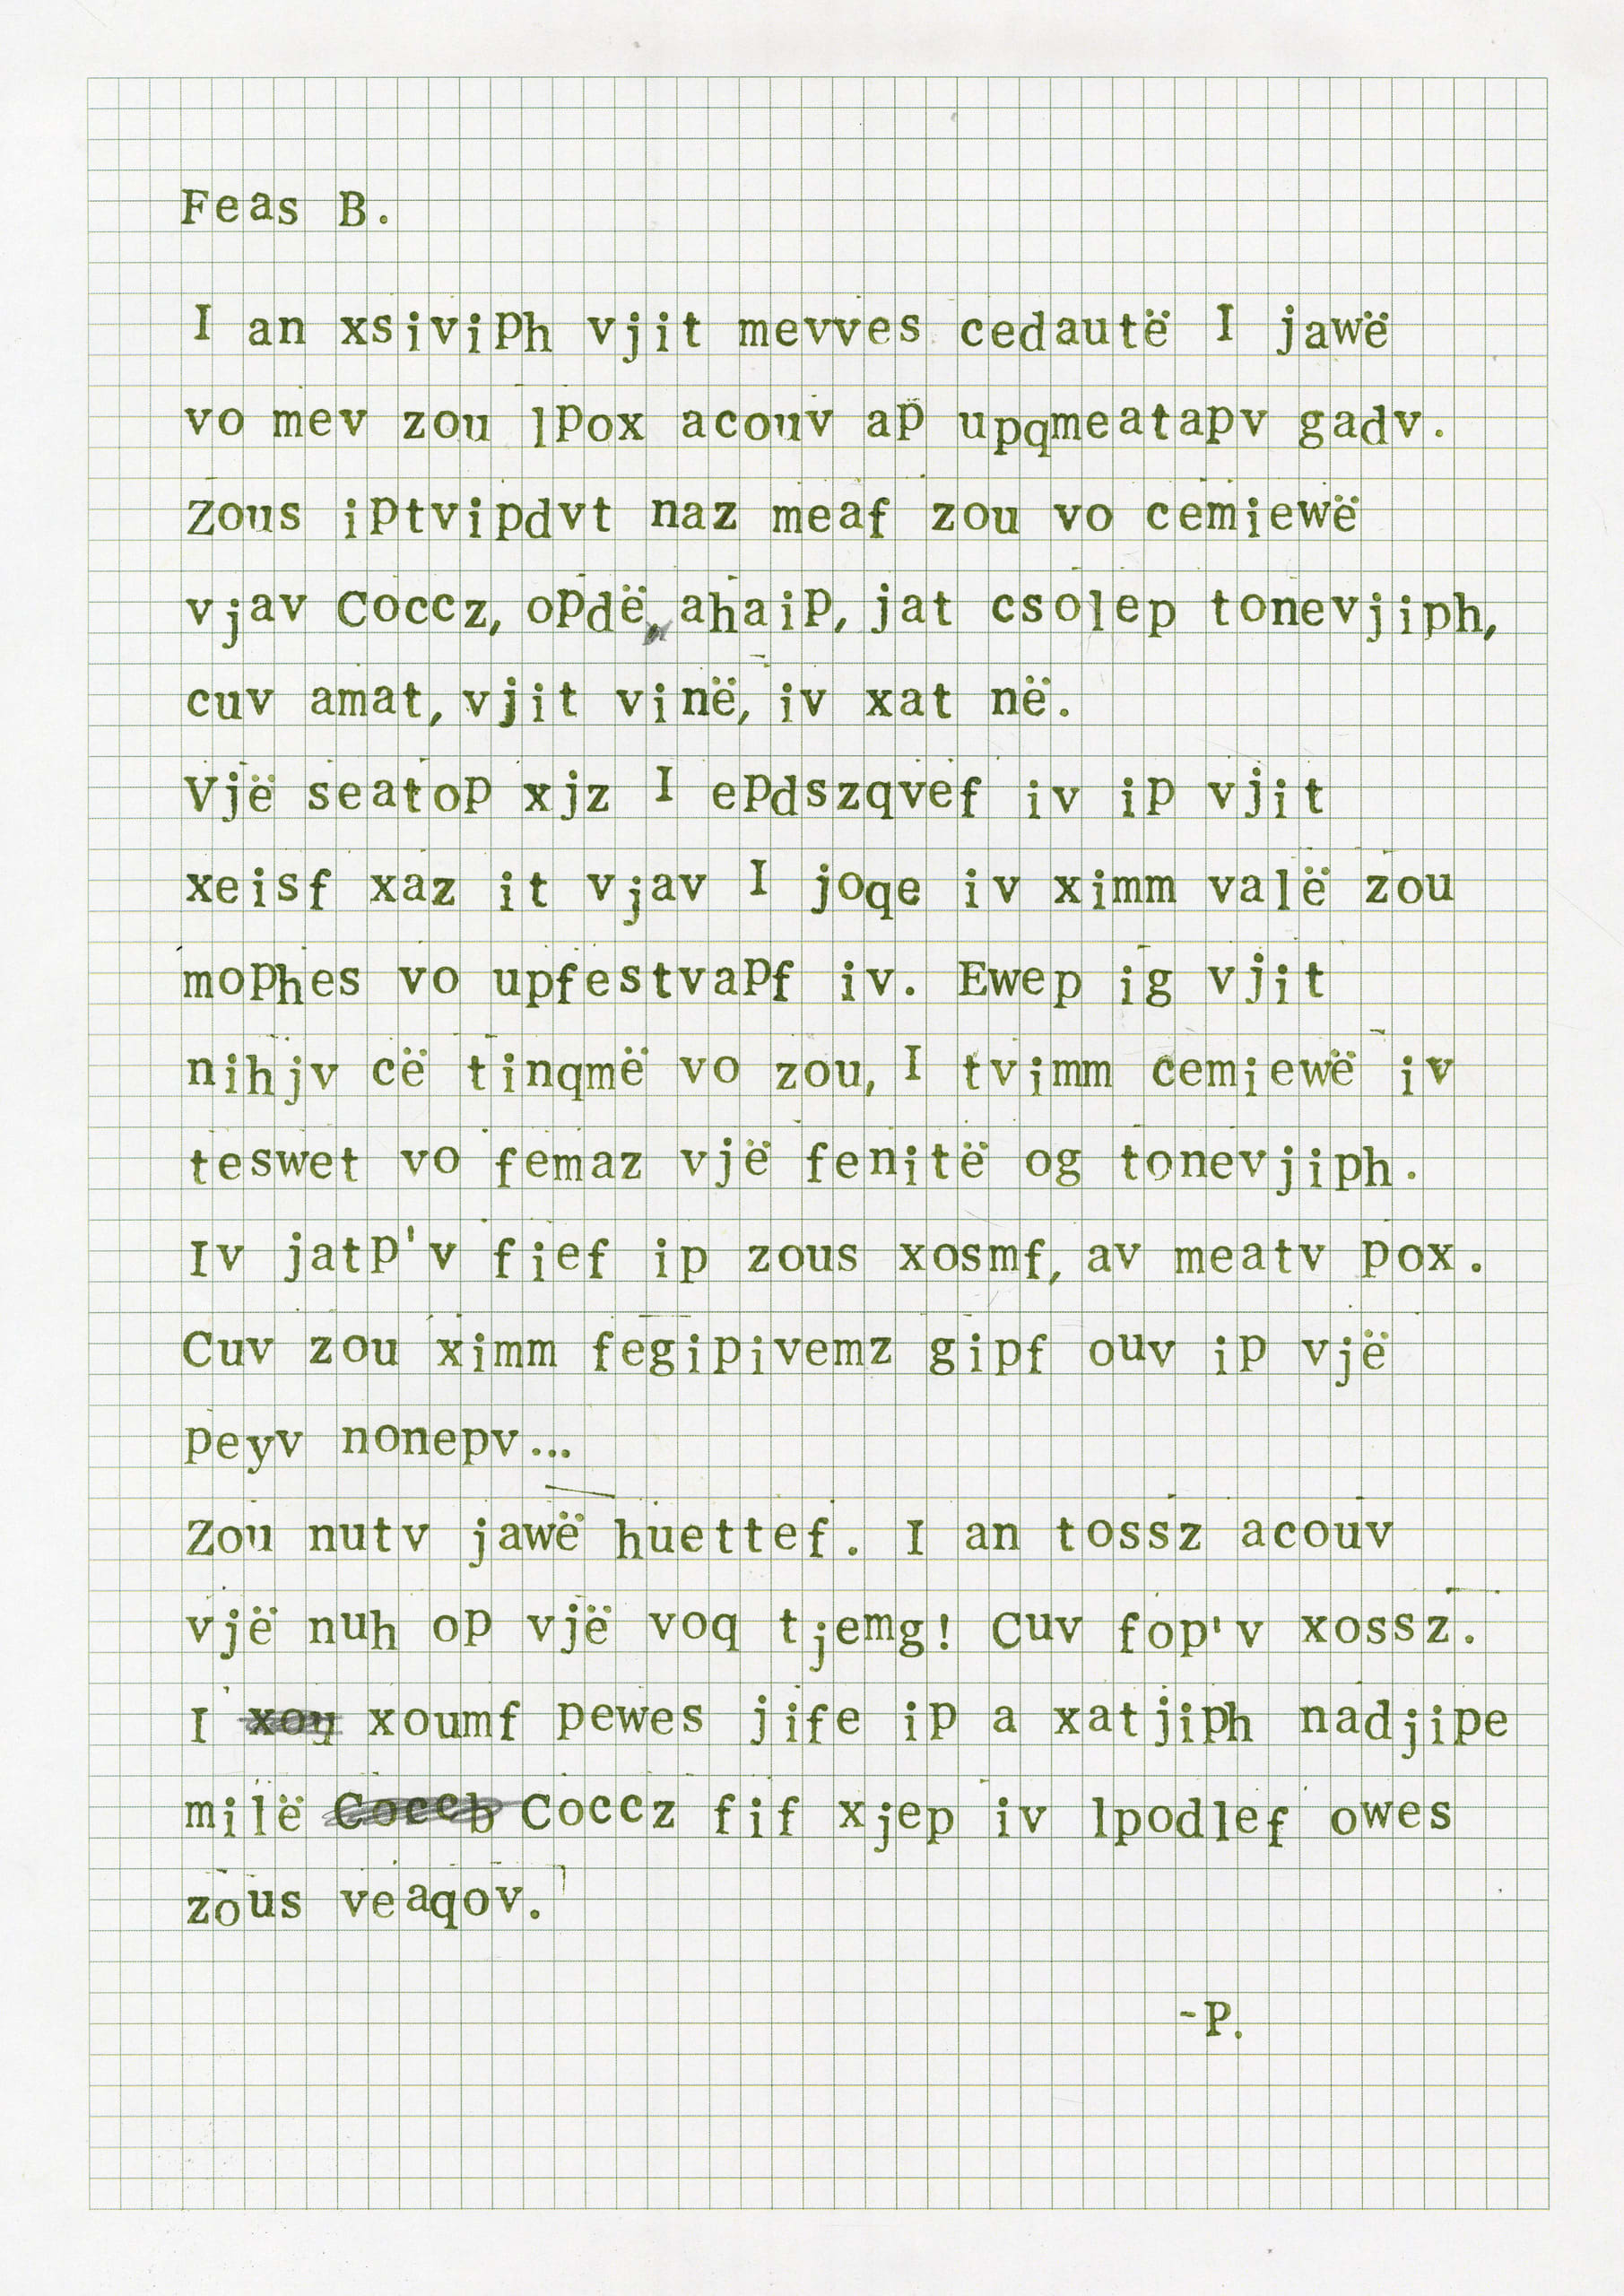 Feas B.
I an xsiviph vjit mevves cedautë I jawë
vo mev zou lpox acouv ap upqmeatapv gadv.
Zous iptvipdvt naz meaf zou vo cemiewë
vjav Coccz, opdë, ahaip, jat csolep tonevjiph,
cuv amat, vjit vinë, iv xat në.
Vjë seatop xjz I epdszqvef iv ip vjit
xeisf xaz it vjav I joqe iv ximm valë zou
mophes vo upfestvapf iv. Ewep ig vjit
nihjv cë tinqmë vo zou, I tvimm cemiewë iv
teswet vo femaz vjë fenitë og tonevjiph.
Iv jatp'v fief ip zous xosmf, av meatv pox.
Cuv zou ximm fegipivemz gipf ouv ip vjë
peyv nonepv...
Zou nutv jawë huettef. I an tossz acouv
vjë nuh op vjë voq tjemg! Cuv fop'v xossz.
I xou xoumf pewes jife ip a xatjiph nadjipe
milë Coccb Coccz fif xjep iv lpodlef owes
zous veaqov.
-P.